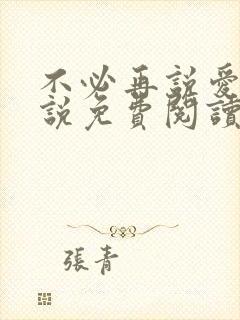 不必再說愛
說免費閱讀
張青